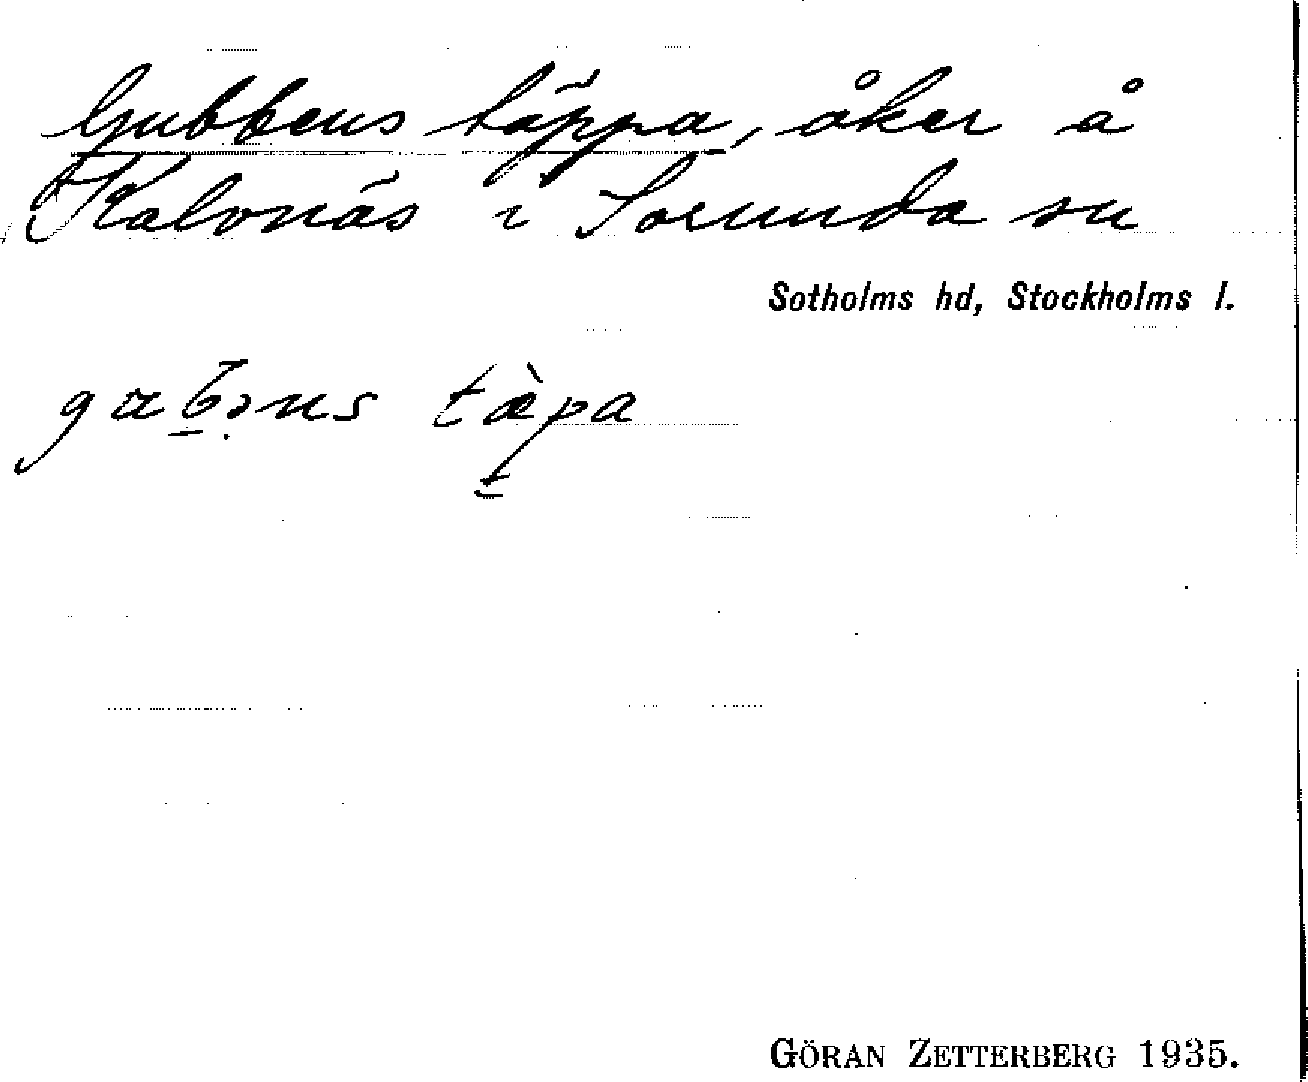 Gubbens täppa, åker å
Kalvnäs i Sorunda sn
Sotholms hd, Stockholms l.
gɯb̲ə̣ns tæ̀p̲a
GÖRAN ZETTERBERG 1935.